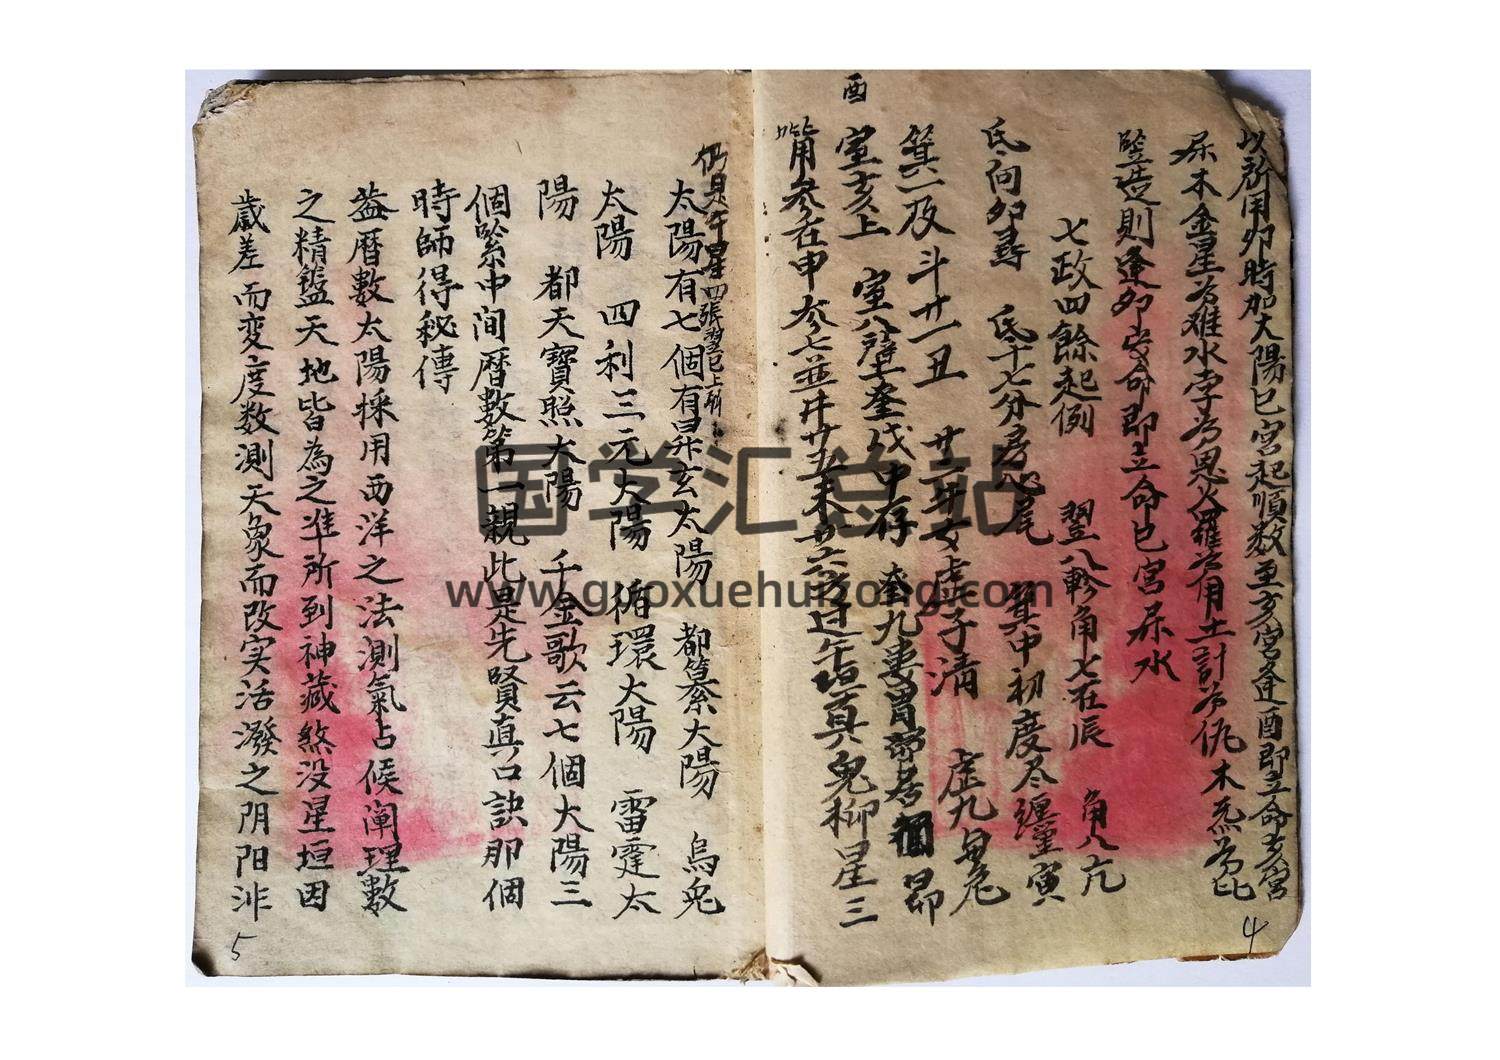 以所用卯時加太陽巳宮起順数至亥宮逢酉即立命亥宮
木金星为难水孛为恩火羅为用土計为仇木炁为比
豎造則逢卯安命即立命巳宮 水
七政四餘起例 翌八軫角七在辰 角八亢
氐向卯尋 氐十七分房心尾 箕中初度尽纏寅
箕二及斗廿一丑 廿二牛女虛子淸 虛九 危
酉
室亥上 室八壁奎戌中存 奎九婁胃 昴
觜參在申參七並井廿五未廿六方过午 真鬼柳星三
仍是午星四張翌巳上
太陽有七個有昇玄太陽 都纂大陽 烏兎
太陽 四利三元大陽 循環大陽 雷霆太
陽 都天寶照大陽 千金歌云七個大陽三
個緊中间曆數第一親此是先賢真口訣那個
時師得秘傳
葢曆數太陽採用西洋之法測氣占候闡理數
之精鑑天地皆為之准所到神藏煞没星垣因
歲差而变度数測天象而改实活潑之阴阳非
4
5
国学汇总站
www.guoxuehuizong.com